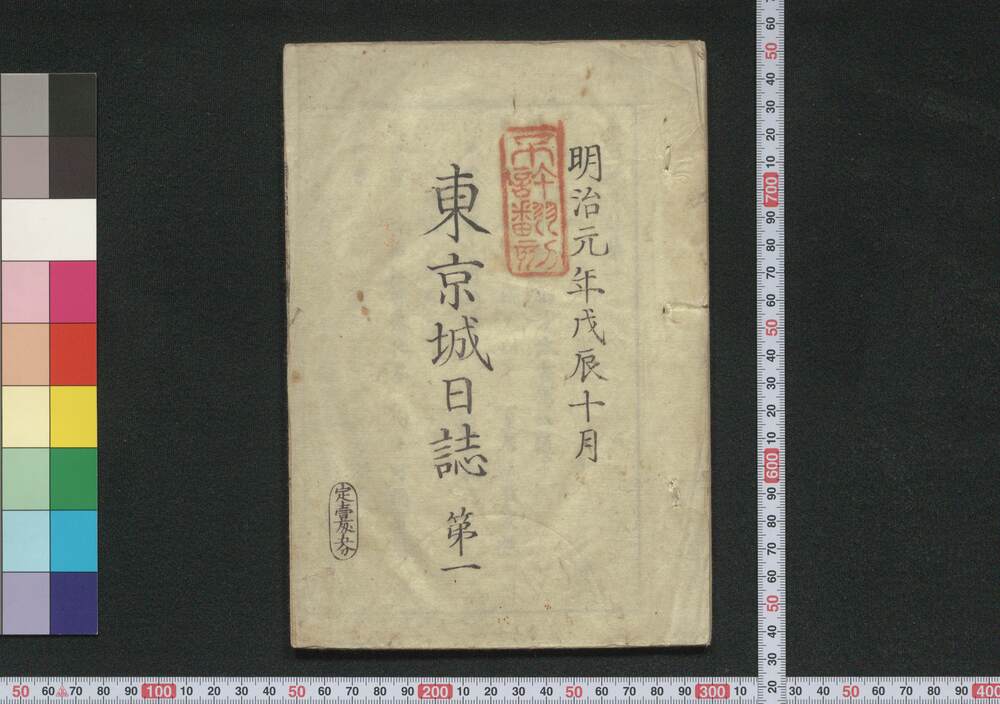 明治元年戊辰十月
不許翻刻
東京城日誌 第一
定壹匁五分
60
50
40
30
20
10
700
90
80
70
60
50
40
30
20
10
600
90
80
70
60
50
40
30
20
50 60 70 80 90 100 10 20 30 40 50 60 70 80 90 200 10 20 30 40 50 60 70 80 90 300 10 30 40 50 60 70 80 90 400